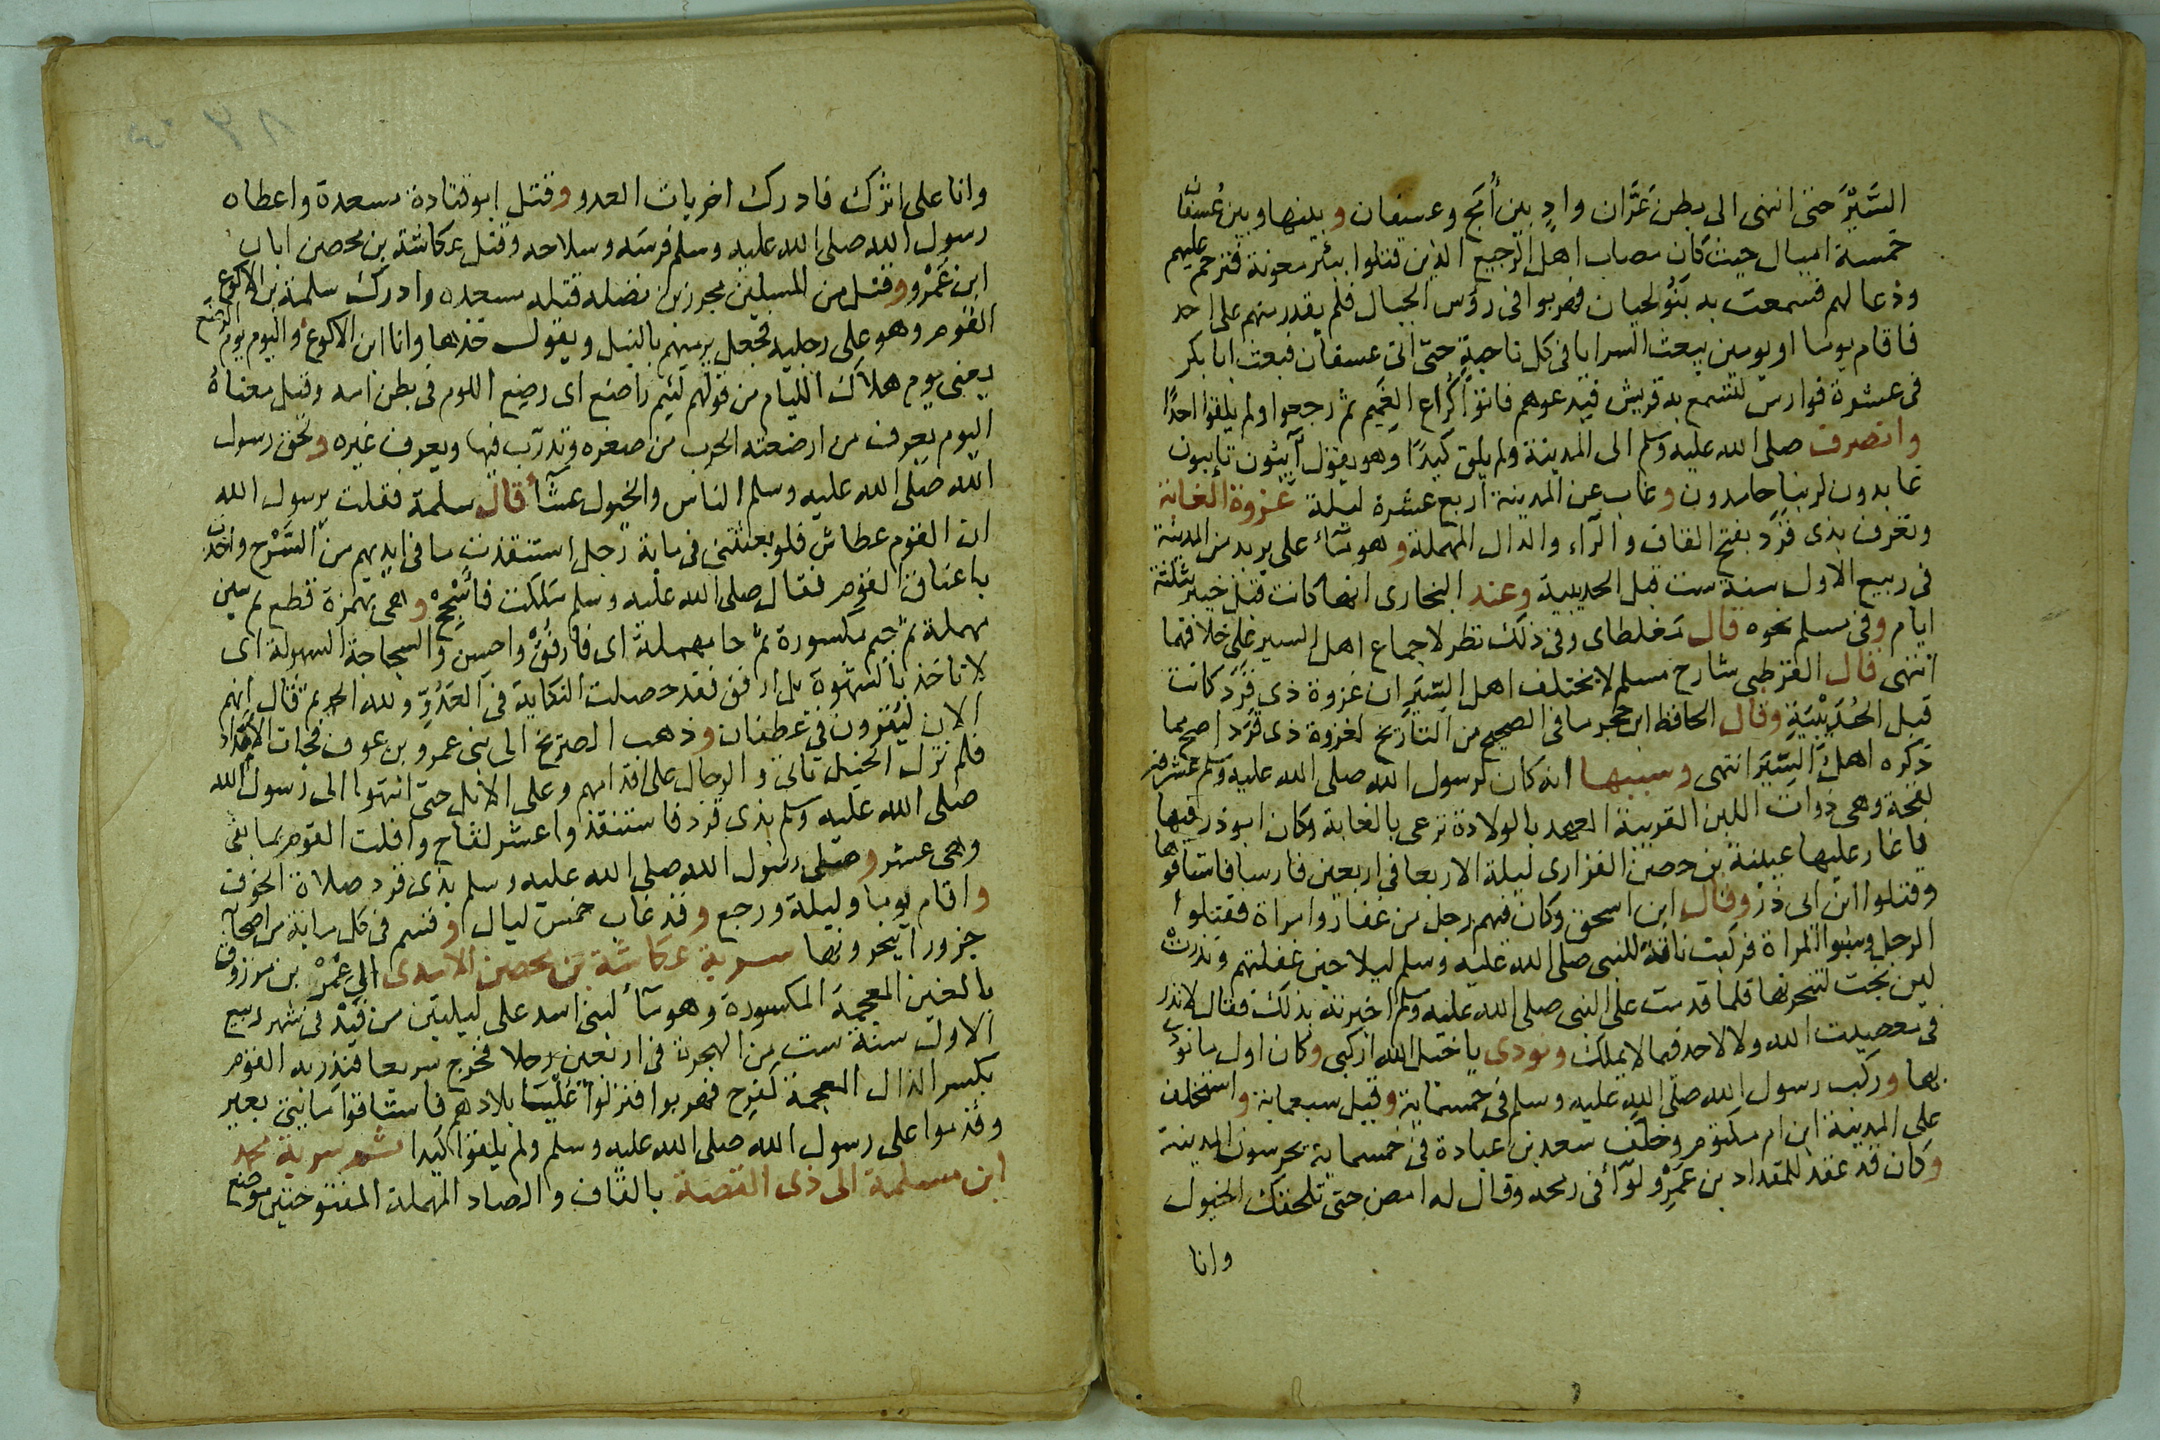 السَّيْرَ حتى انتهى الى بطن غَرَّان وادٍ بين أَمَج وعسفان وبينها وبين عُسفان
خمسة اميال حيث كان مصاب اهل الرجيع الذين قتلوا ببئر معونة فترحم عليهم
ودعا لهم فسمعت به بَنُو لحيان فهربوا في رؤس الجبال فلم يقدر منهم على احد
فاقام يوما او يومين يبعث السرايا في كل ناحيةٍ حتى اتى عسفان فبعث ابا بكر
في عشرة فوارس لتسمع به قريش فيدعوهم فاتوا كُراع الغَمِيم ثم رجعوا ولم يلقوا احدًا
وانصرف صلى الله عليه وسلم الى المدينة ولم يلق كيدًا وهو يقول آيبُون تايبون
عابدون لربنا حامدون وغاب عن المدينة اربع عشرة ليلة غزوة الغابة
وتعرف بذى قَرَد بفتح القاف والرّاء والدال المهملة وهو مَاء على بريد من المدينة
في ربيع الاول سنة ست قبل الحديبية وعند البخارى انها كانت قبل خيبر بثلثة
ايام وفي مسلم نحوه قال مُغلطاى وفي ذلك نظر لاجماع اهل السير على خلافهما
انتهى قال القرطبي شارح مسلم لا يختلف اهل السِّيَر ان غزوة ذى قَرَد كانت
قبل الحُدَيْبِيَةِ وقال الحافظ ابن حجر ما في الصحيح من التاريخ لغزوة ذى قَرَد اصح مما
ذكره اهل السِّيَر انتهى وسببها انه كان لرسول الله صلى الله عليه وسلم عشرون
لقحة وهى ذوات اللبن القريبة العهد بالولادة ترعى بالغابة وكان ابو ذر فيها
فاغار عليها عيينة بن حصن الفزارى ليلة الاربعا في اربعين فارسا فاستاقوها
وقتلوا ابن ابى ذَرّ وقال ابن اسحق وكان فيهم رجل من غفار وامراة فقتلوا
الرجل وسَبوا المراة فركبت ناقةً للنبي صلى الله عليه وسلم ليلا حين غفلتهم ونذرتْ
لين نجت لتنحرنها فلما قدمت على النبي صلى الله عليه وسلم اخبرته بذلك فقال لا نذر
في معصيت الله ولا لاحد فيما لا يملك ونودى يا خيل الله اركبي وكان اول ما نودى
بها وركب رسول الله صلى الله عليه وسلم في خمسماية وقيل سبعماية واستخلف
على المدينة ابن ام مكتوم وخلّف سعد بن عبادة في خمسماية يحرسون المدينة
وكان قد عقد للمقداد بن عَمْرٍو لِوَاءً في رمحه وقال له امض حتى تلحقك الخيول
وانا
وانا على اثرك فادرك اخريات العدو وقتل ابو قتادة مسعدة واعطاه
رسول الله صلى الله عليه وسلم فرسَه وسلاحه وقتل عكاشة بن محصن ابان
ابن عَمْرٍو وقتل من المسلمين محرز بن نضلة قتله مسعده وادرك سلمة بن الاكوع
القوم وهو على رجليه فجعل يرميهم بالنبل ويقول خذها وانا ابن الاكوع واليوم يومُ الرضع
يعنى يوم هلاك الليام من قولهم لئيم راضع اى رضع اللوم في بطن امه وقيل معناهُ
اليوم يعرف من ارضعته الحرب من صغره وتدرّب فيها ويعرف غيره ولحق رسول
الله صلى الله عليه وسلم الناس والخيول عشاءً قال سلمة فقلت يرسول الله
ان القوم عطاش فلو بعثتنى في ماية رجل استنقذت ما في ايديهم من السَّرْح واخذت
باعناق القوم فقال صلى الله عليه وسلم مَلكت فأَسْجِحْ وهى بهمزة قطع ثم سين
مهملة ثم جيم مكسورة ثم حا مهملة اى فارفُقْ واحسن والسجاحة السهولة اى
لا تاخذ بالشهوة بل ارفق فقد حصلت النكاية في العَدُوِّ ولله الحمد ثم قال انهم
الان ليُقْرون في غطفان وذهب الصريخ الى بنى عمرو بن عوف فجات الامداد
فلم تزل الخيل تاتى والرجال على اقدامهم وعلى الابل حتى انتهوا الى رسول الله
صلى الله عليه وسلم بذى قرد فاستنقذوا عشر لقاح وافلت القوم بما بقى
وهى عشر وصلى رسول الله صلى الله عليه وسلم بذى قرد صلاة الخوف
واقام يوما وليلة ورجع وقد غاب خمس ليال وقسم في كل ماية من اصحابه
جزورا ينحرونها سرية عكاشة بن محصن الاسدى الى غَمْر بن مرزوق
بالغين المعجمة المكسورة وهو ماءٌ لبنى اسد على ليلتين من فَيْد في شهر ربيع
الاول سنة ست من الهجرة في اربعين رجلا فخرج سريعا فنَذِر به القوم
بكسر الذال المعجمة كفرح فهربوا فنزلوا عُلْيَا بلادهم فاستاقوا مايتى بعير
وقدموا على رسول الله صلى الله عليه وسلم ولم يلقوا كيدا ثم سرية محمد
ابن مسلمة الى ذى القصة بالقاف والصاد المهملة المفتوحتين موضع